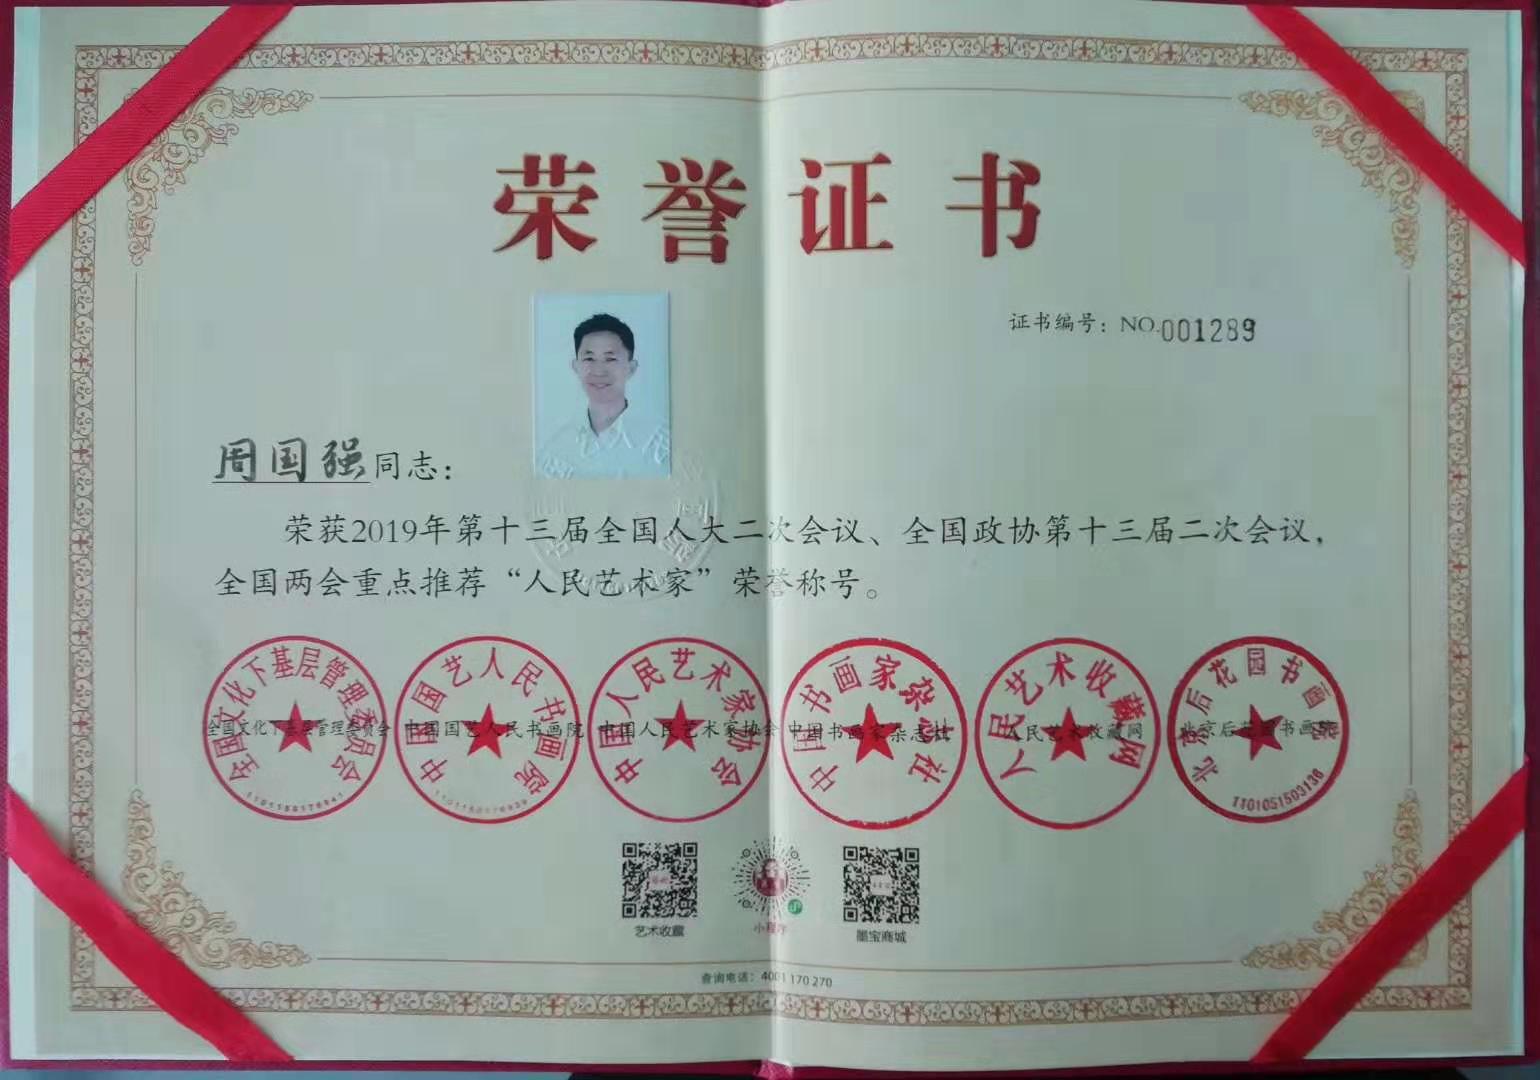 荣誉证书
证书编号：NO.001289
周国强同志：
荣获2019年第十三届全国人大二次会议、全国政协第十三届二次会议，
全国两会重点推荐“人民艺术家”荣誉称号。
全国文化下基层管理委员会
中国国艺人民书画院
中国人民艺术家协会
中国书画家杂志社
人民艺术收藏网
北京后花园书画院
全国文化下基层管理委员会 中国国艺人民书画院 中国人民艺术家协会 中国书画家杂志社 人民艺术收藏网 北京后花园书画院
1101051503136
艺术收藏
小程序
墨宝商城
查询电话：4001 170 270